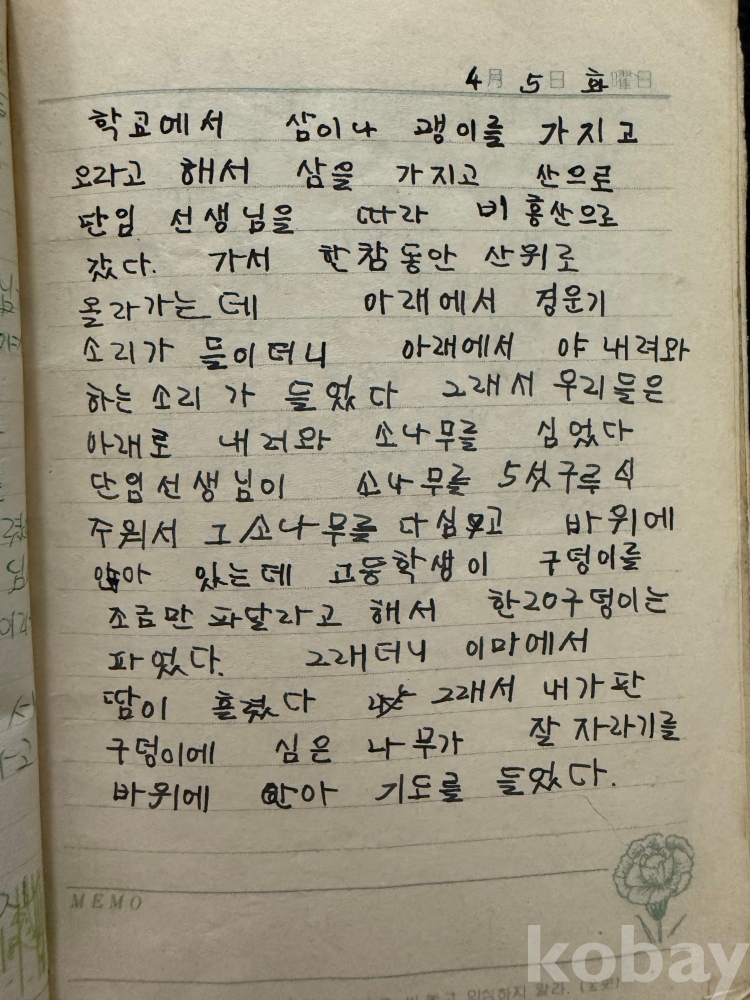 4月 5日 화曜日
학교에서 삼이나 괭이를 가지고
오라고 해서 삼을 가지고 산으로
단임 선생님을 따라 비홍산으로
갔다. 가서 한참동안 산위로
올라가는데 아래에서 경운기
소리가 들이더니 아래에서 야 내려와
하는 소리가 들었다 그래서 우리들은
아래로 내러와 소나무를 심었다
단임선생님이 소나무를 5섯구루 식
주워서 그 소나무를 다심고 바위에
앉아 있는데 고등학생이 구덩이를
조금만 파달라고 해서 한20구덩이는
파었다. 그래더니 이마에서
땀이 흘렸다 그래서 내가 판
구덩이에 심은 나무가 잘 자라기를
바위에 안아 기도를 들었다.
MEMO
kobay